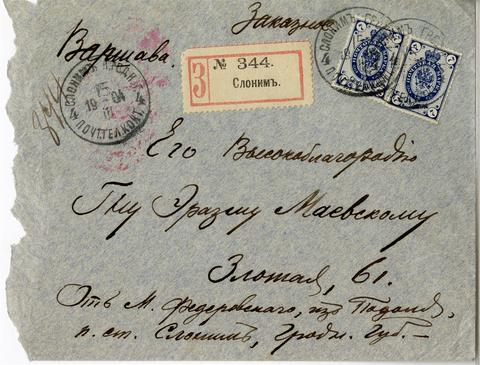 Заказное
Варшава.
З
№ 344.
Слонимъ.
СЛОНИМЪ ГРОДН. Г.
4 4
19 04
ПОЧ.ТЕЛ.КОНТ.
7 7
7 7
Его Высокоблагородію
Гну Эразму Маевскому
Злотая, 61.
Отъ М. Федеровскаго, изъ
п. ст. Слонимъ, Гродн. Губ. –